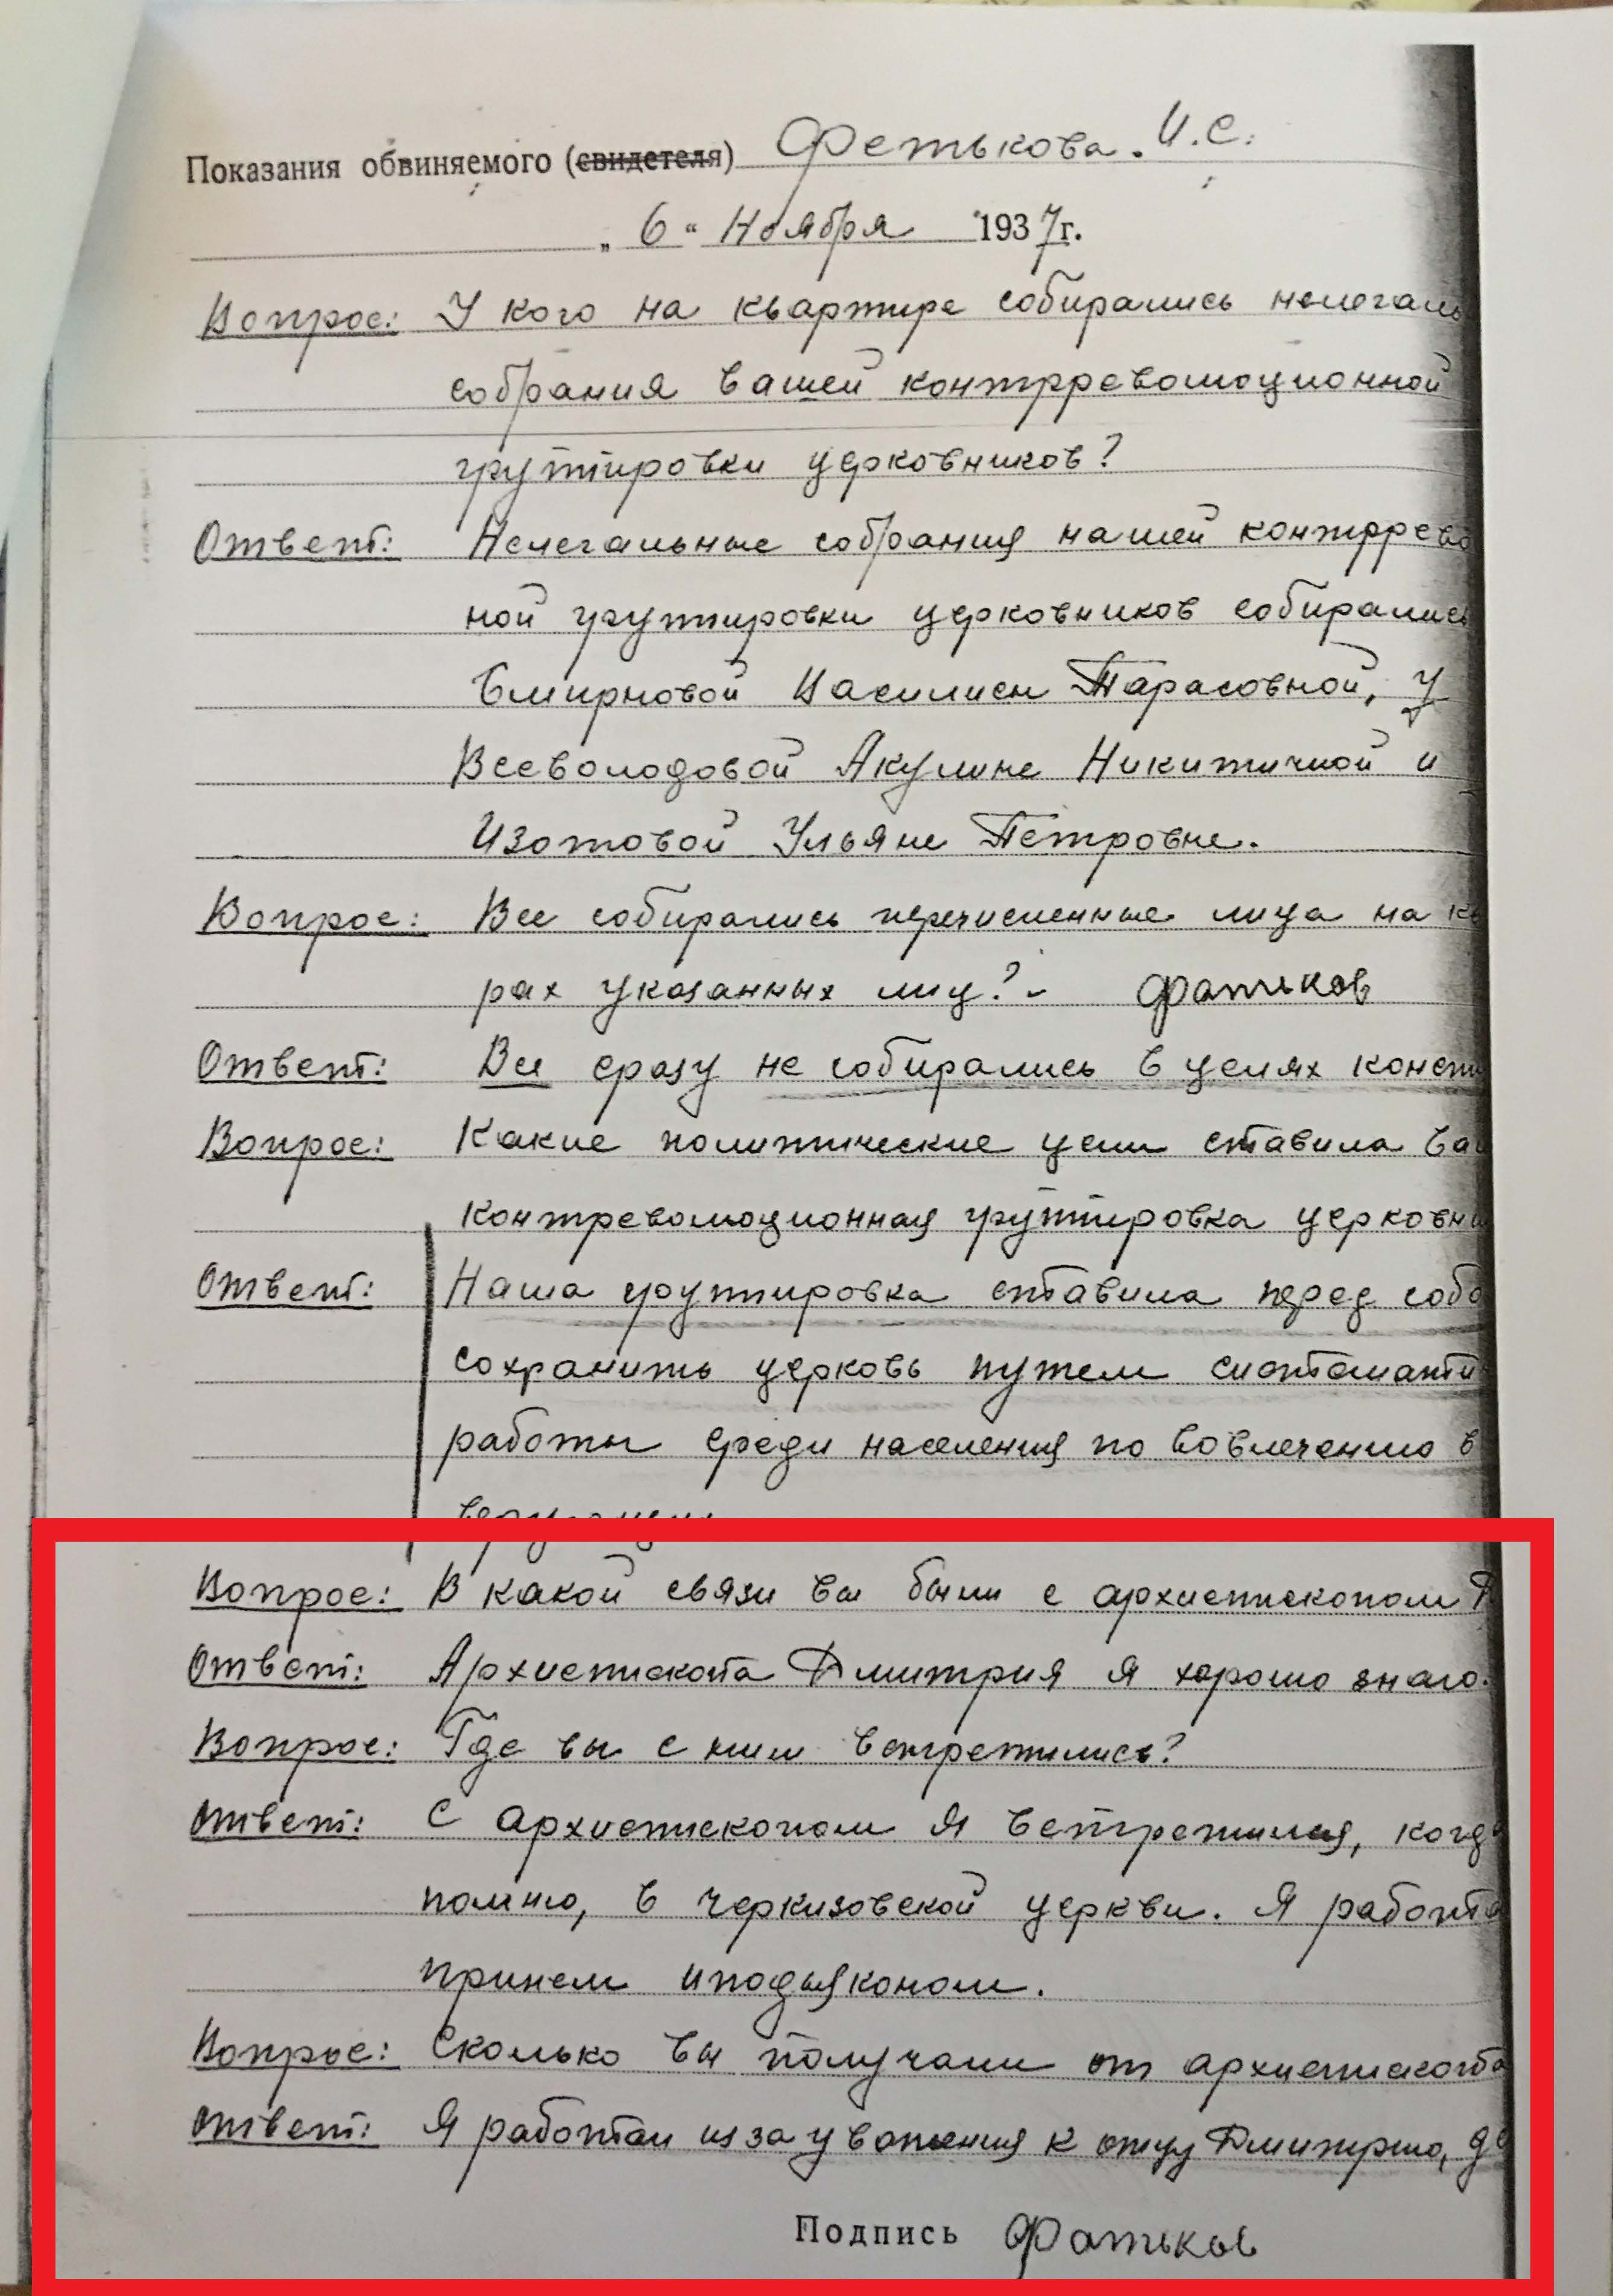 Показания обвиняемого (свидетеля) Фетькова. И.С.
„ 6 “ Ноября 1937г.
Вопрос: У кого на квартире собирались нелегаль
собрания вашей контрреволюционной
группировки церковников?
Ответ: Нелегальные собрания нашей контррево
ной группировки церковников собирались
Смирновой Василисы Тарасовной, у
Всеволодовой Акулине Никитичной и
Изотовой Ульяне Петровне.
Вопрос: Все собирались перечисленные лица на кв
рах указанных лиц?- Фатьков
Ответ: Все сразу не собирались в целях конспи
Вопрос: Какие политические цели ставила ваш
контреволюционная группировка церковни
Ответ: Наша группировка ставила перед собо
сохранить церковь путем систомати
работы среди населения по вовлечению в
Вопрос: В какой связи вы были с архиепископом Д
Ответ: Архиепископа Дмитрия я хорошо знаю.
Вопрос: Где вы с ним встретились?
Ответ: С архиепископом я встретился, когда
помню, в Черкизовской церкви. Я работа
принем иподьяконом.
Вопрос: Сколько вы получали от архиепископа
Ответ: Я работал из за уважения к отцу Дмитрию, де
Подпись Фатьков